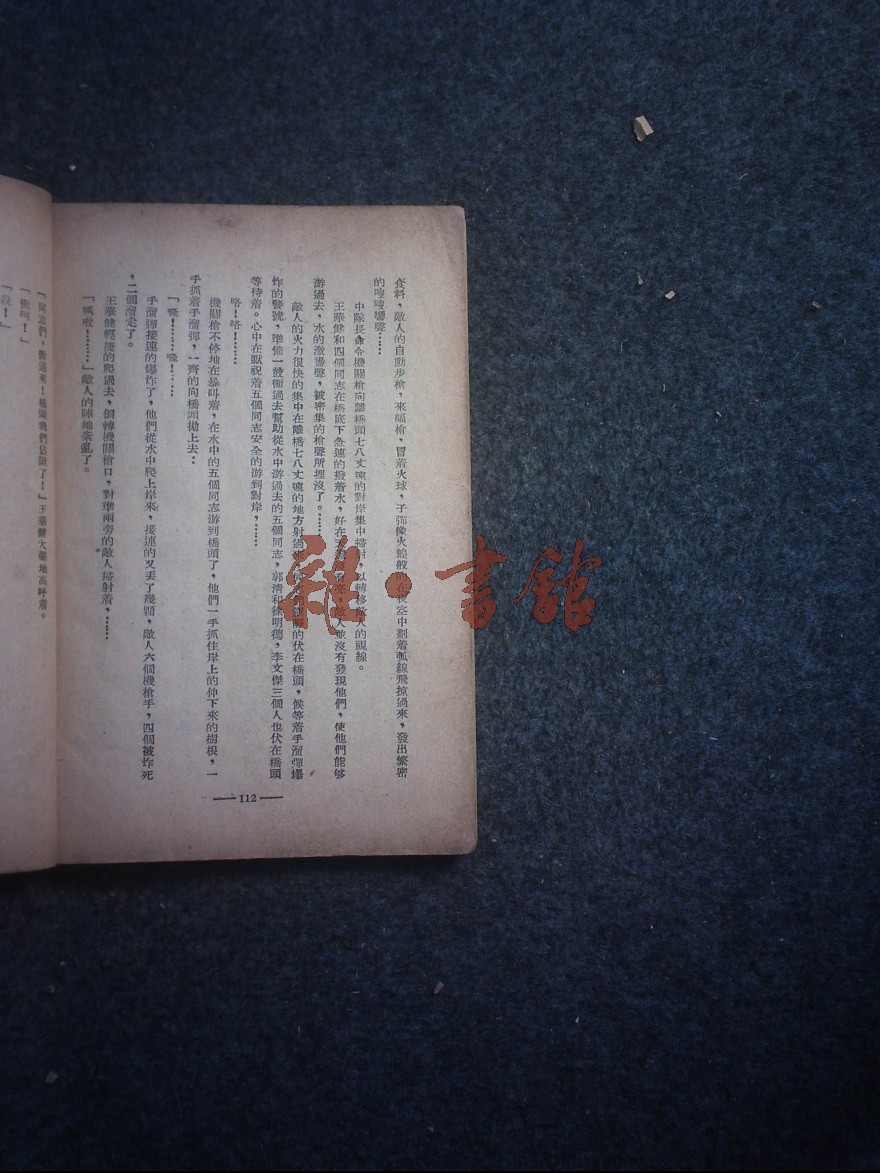 食料，敵人的自動步槍，來福槍，冒着火球，子彈像火蝗般的在夜空中劃着弧線飛掠過來，發出繁密
的嗖嗖響聲……
中隊長命令機關槍向離橋頭七八丈遠的對岸集中掃射，以轉移敵人的視線。
王華健和四個同志在橋底下急速的撥着水，好在天 人並沒有發現他們，使他們能够
游過去，水的激盪聲，被密集的槍聲所埋沒了。……
敵人的火力很快的集中在離橋七八丈遠的地方射過來 的伏在橋頭，候等着手溜彈爆
炸的響號，準備一鼓衝過去幫助從水中游過去的五個同志，郭清和徐明德，李文傑三個人也伏在橋頭
等待着。心中在默祝着五個同志安全的游到對岸，……
咯！咯！……
機關槍不停地在暴叫着，在水中的五個同志游到橋頭了，他們一手抓住岸上的伸下來的樹根，一
手抓着手溜彈，一齊的向橋頭拋上去：
「轟！……轟！……
手溜彈接連的爆炸了，他們從水中爬上岸來，接連的又丟了幾顆，敵人六個機槍手，四個被炸死
，二個溜走了。
王華健輕捷的爬過去，倒轉機關槍口，對準兩旁的敵人掃射着，……
「 ！……」敵人的陣地紊亂了。
「同志們，衝過來！橋頭我們佔領了！」王華健大聲地高呼着。
「衝呵！」
「殺！」
—112—
雜·書館